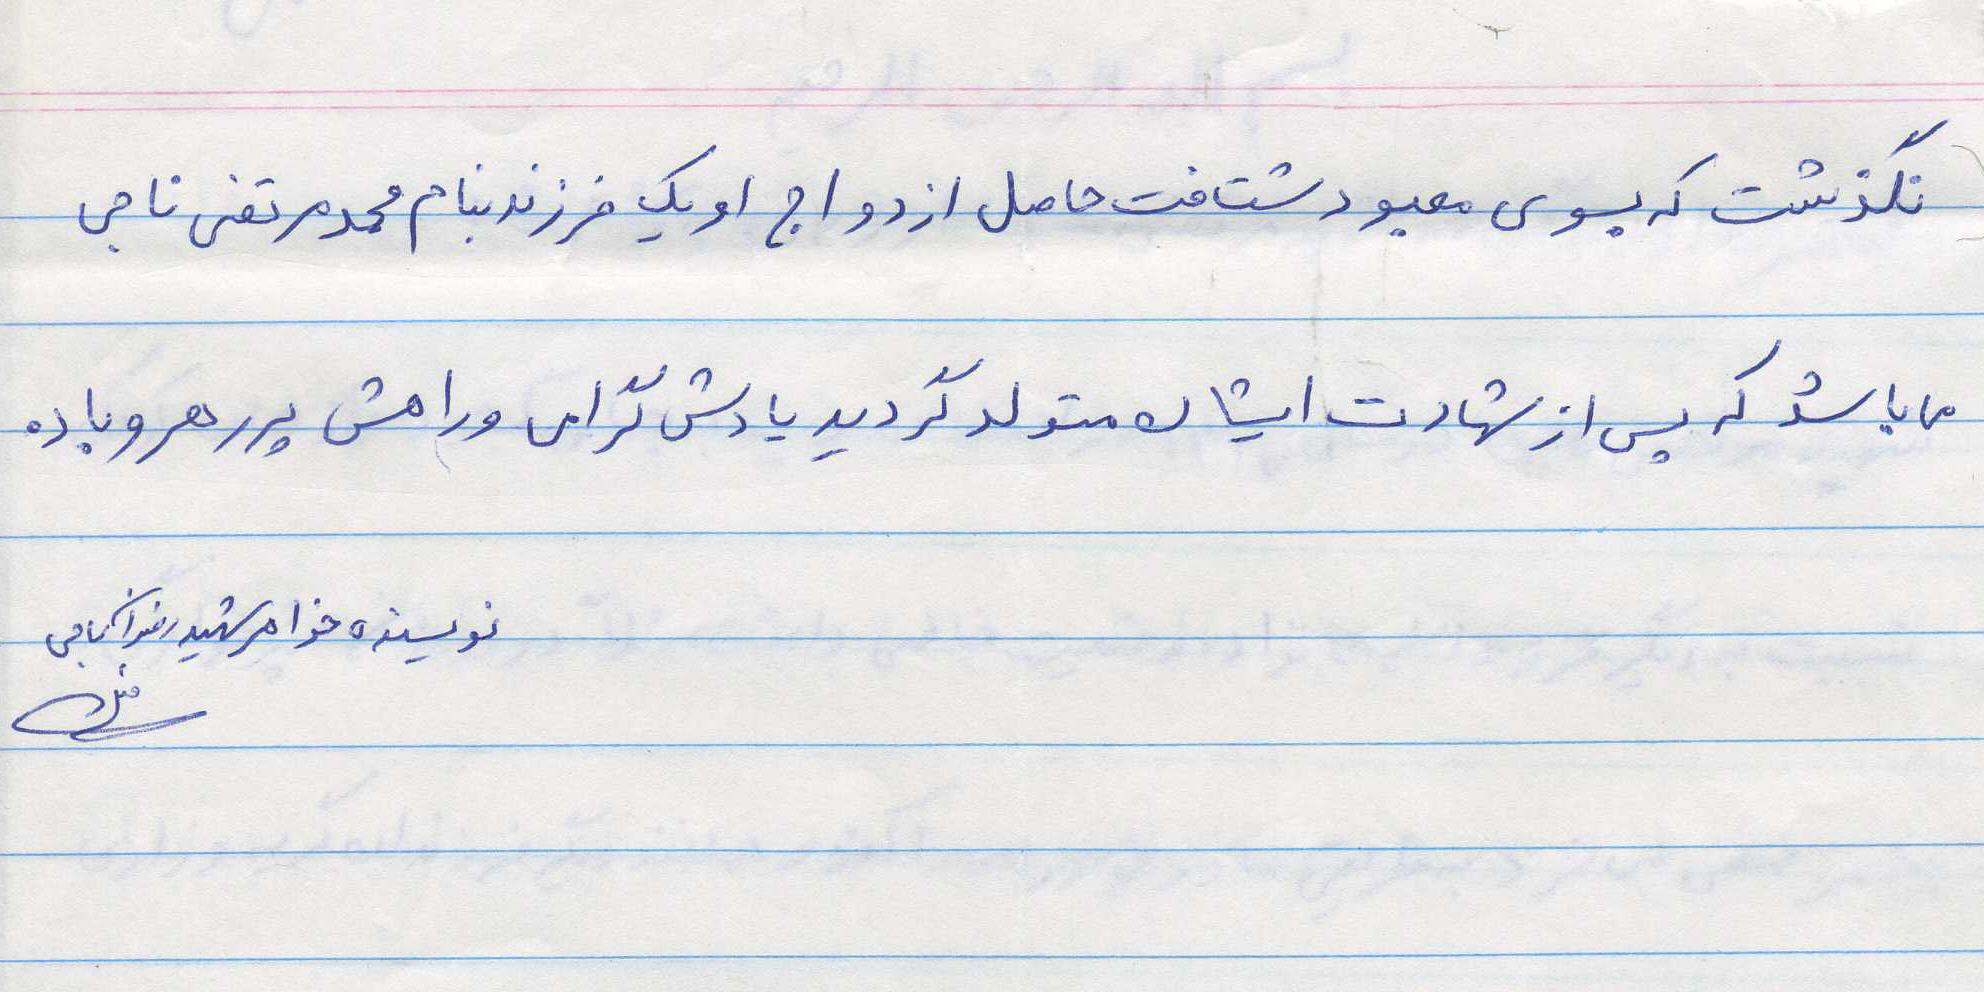 نگذشت که بسوی معبود شتافت حاصل ازدواج او یک فرزند بنام محمد مرتضی ناجی
می باشد که پس از شهادت ایشان متولد گردید یادش گرامی و راهش پر رهرو باد
نویسنده خواهر شهید ناجی